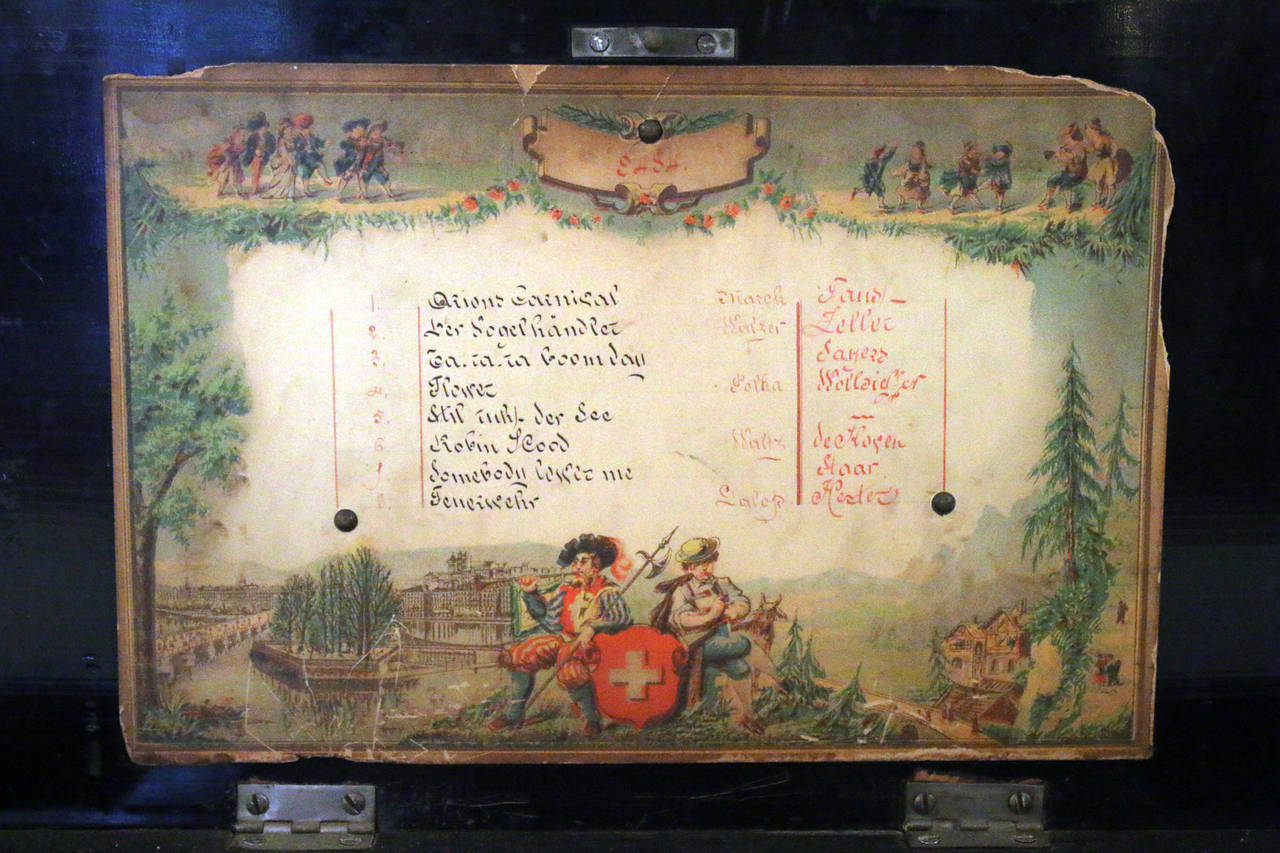 8484.
1. Orions Carnival March Faust
2. Der Vogelhändler Walzer Zeller
3. Ta.ra.ra boom day Sayers
4. Flower Polka
5. Stil ruht der See
6. Robin Hood Waltz de Koven
7. Somebody lower me Staar
8. Feuerwehr Galop